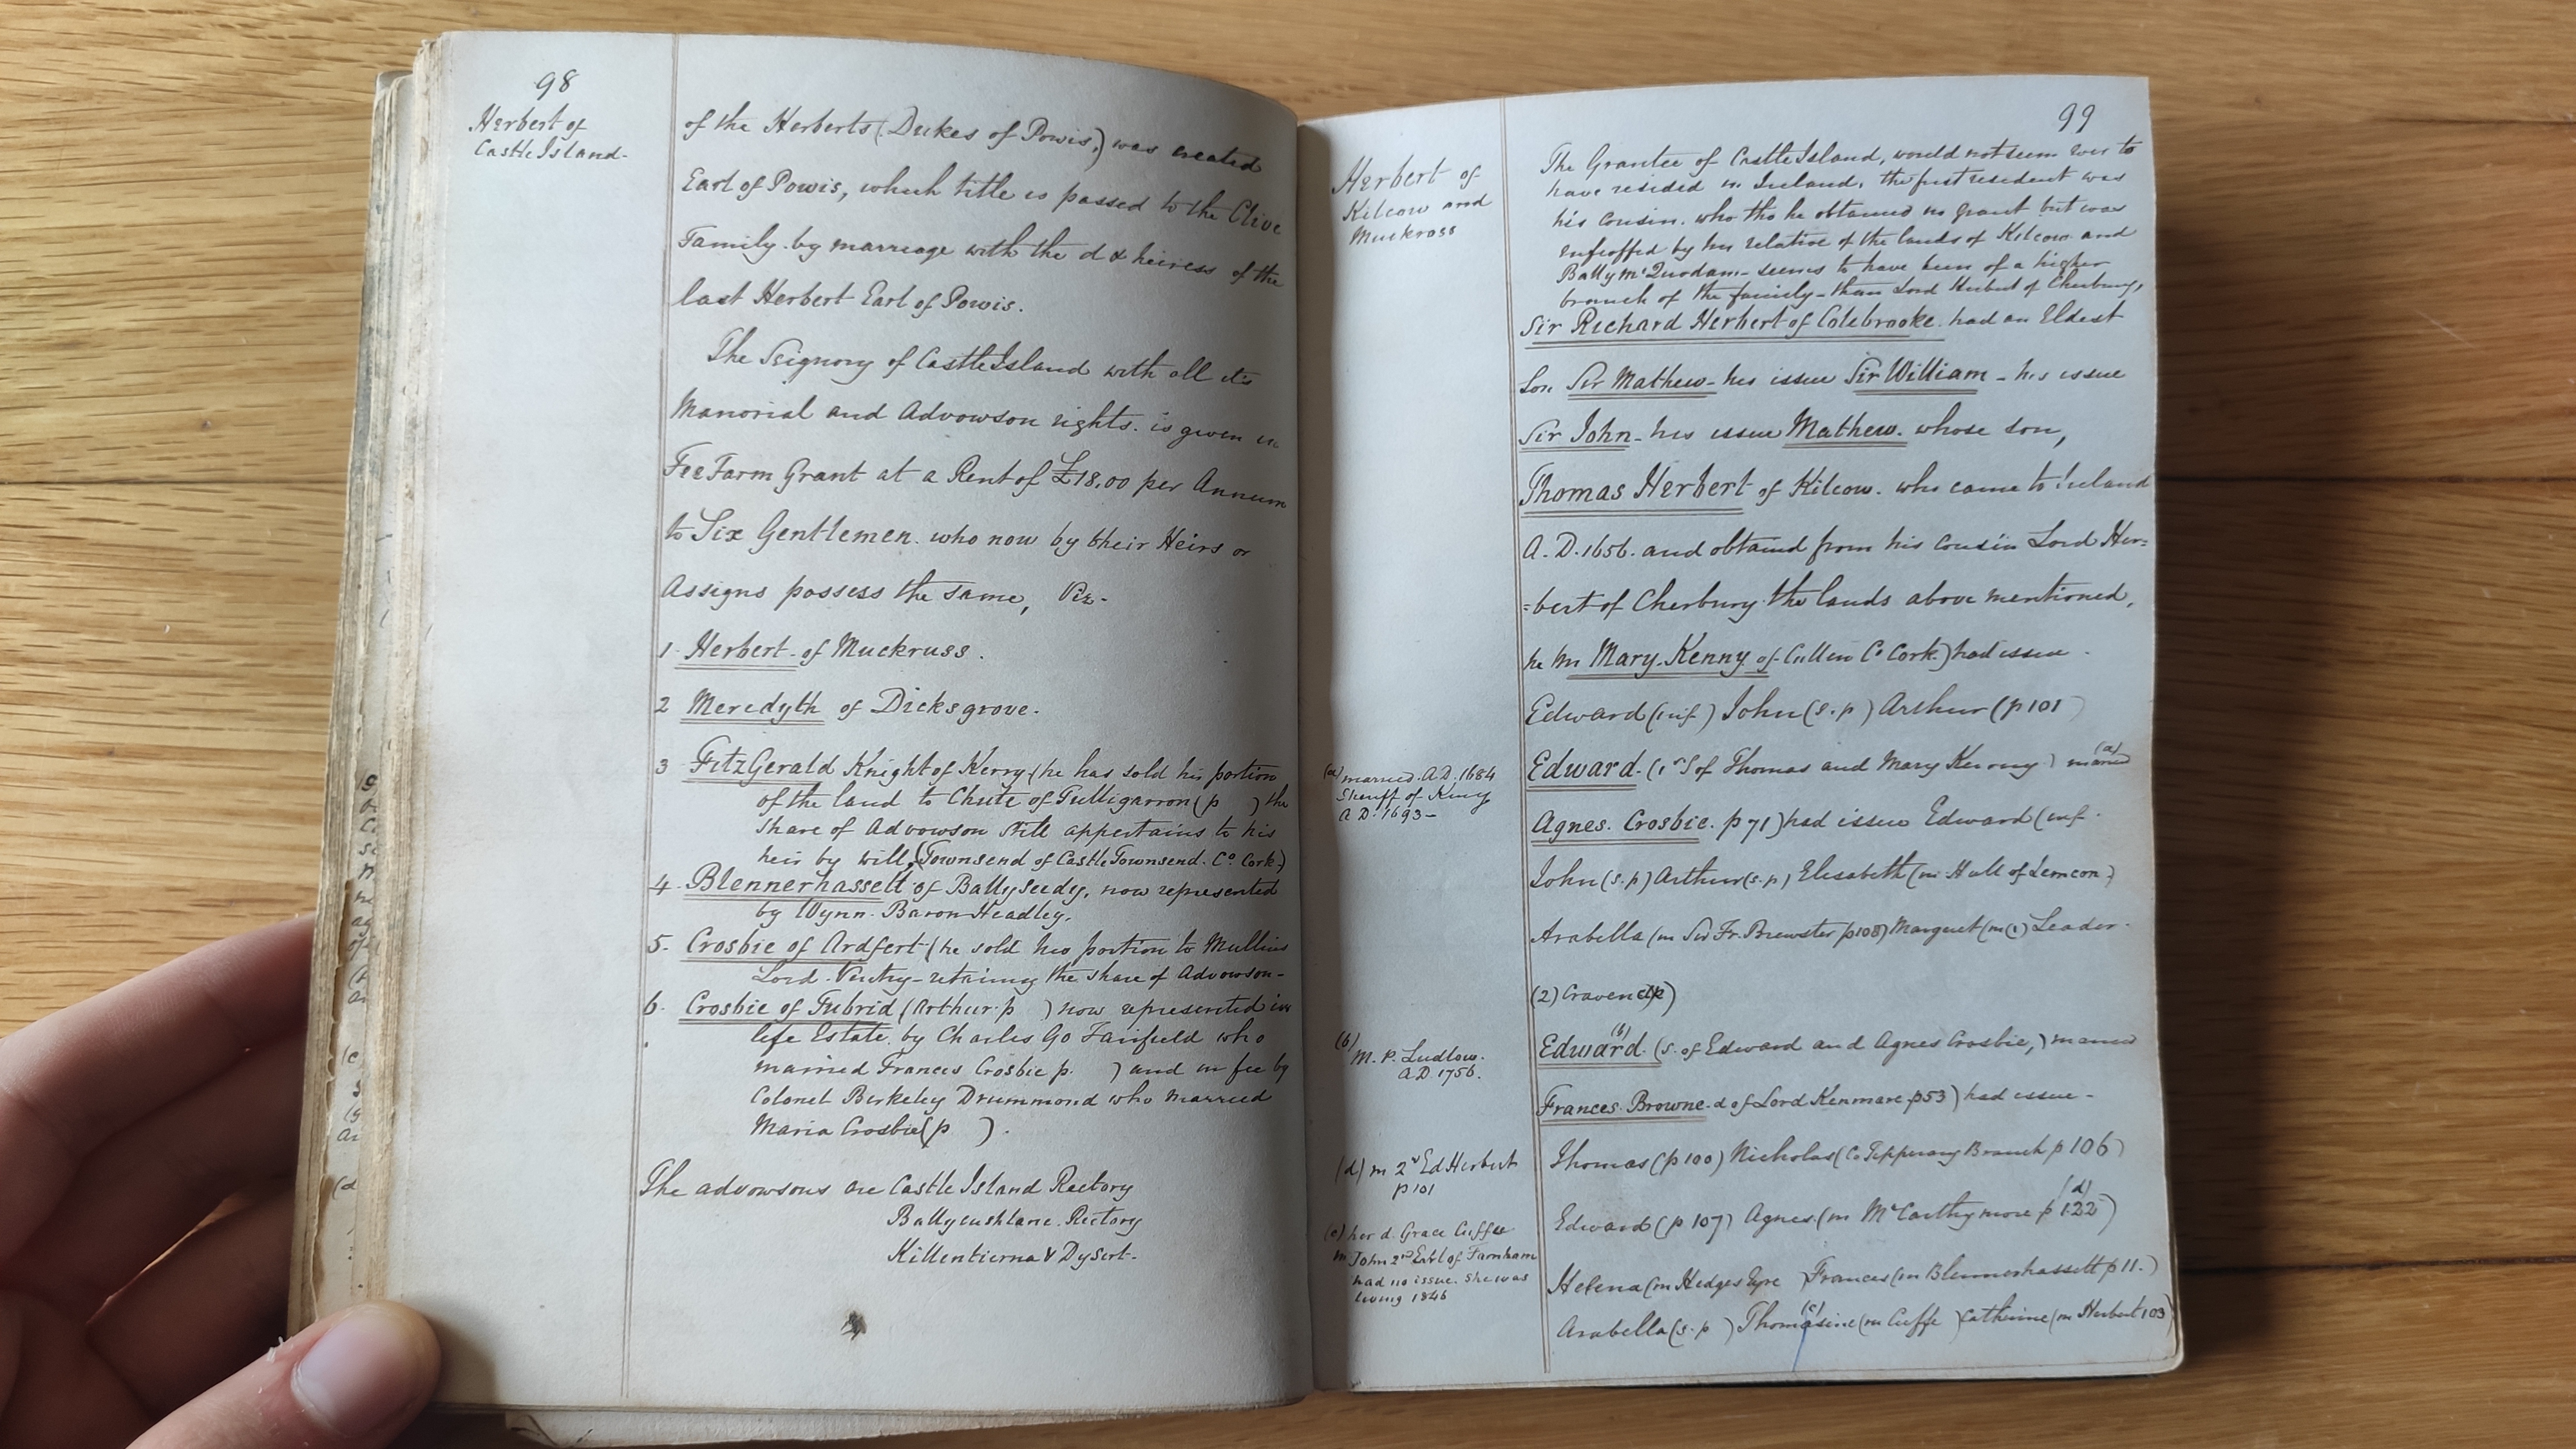 98
Herbert of
Castle Island.
of the Herberts (Dukes of Powis,) was created
Earl of Powis, which title is passed to the Clive
Family by marriage with the d & heiress of the
last Herbert Earl of Powis.
The Seignory of Castle Island with all its
Manorial and Advowson rights. is given in
Fee Farm Grant at a Rent of £18.00 per Annum
to Six Gentlemen. who now by their Heirs or
Assigns possess the same, Viz-
1 Herbert of Muckruss.
2 Meredyth of Dicksgrove.
3 FitzGerald Knight of Kerry (he has sold his portion
of the land to Chute of Tulligarron (p ) the
share of Advowson still appertains to his
heir by will, (Townsend of Castle Townsend. Co. Cork.)
4 Blennerhassett of Ballyseedy, now represented
by Wynn. Baron Headley.
5. Crosbie of Ardfert (he sold his portion to Mullins
Lord Ventry - retaining the share of Advowson -
6. Crosbie of Tubrid (Arthur p ) now represented in
life Estate, by Charles Go Fairfield who
married Frances Crosbie p. ) and in fee by
Colonel Berkeley Drummond who married
Maria Crosbie (p ).
The advowsons are Castle Island Rectory
Ballycushlane. Rectory
Killentierna & Dysert.
99
Herbert of
Kilcow and
Muckross
The Grantee of Castle Island, would not seem ever to
have resided in Ireland. the first resident was
his cousin. who tho he obtained no grant but was
enfeoffed by his relative of the lands of Kilcow and
Bally McQuodam - seems to have been of a higher
branch of the family - than Lord Herbert of Cherbury,
Sir Richard Herbert of Colebrooke had an Eldest
Son Sir Mathew - his issue Sir William - his issue
Sir John - his issue Mathew. whose son,
Thomas Herbert of Kilcow. who came to Ireland
A.D. 1656. and obtained from his cousin Lord Her=
=bert of Cherbury the lands above mentioned,
he m Mary Kenny of Cullen Co Cork) had issue -
Edward (inf) John (s.p) Arthur (p 101
(a) married A.D. 1684
Sheriff of Kerry
A.D. 1693 -
Edward. (1st S of Thomas and Mary Kenny) married (a)
Agnes. Crosbie. p 71) had issue Edward (inf.
John (s.p) Arthur (s.p) Elisabeth (m Hull of Lemcon)
Arabella (m Sir Fr. Brewster p 108) Margaret (m (1) Leader.
(2) Craven
(b) M. P. Ludlow.
A.D. 1756.
Edward. (b) (s. of Edward and Agnes Crosbie,) married
Frances Browne d of Lord Kenmare p 53) had issue -
Thomas (p 100) Nicholas (Co Tipperary Branch p 106)
(d) m 2d Ed Herbert
p 101
Edward (p 107) Agnes (m McCarthy more p 122) (d)
(c) her d. Grace Cuffe
m John 2nd Earl of Farnham
had no issue. She was
living 1846
Helena (m Hedges Eyre ) Frances (m Blennerhassett p 11.)
Arabella (s.p ) Thomasine (c) (m Cuffe ) Catherine (m Herbert 103)